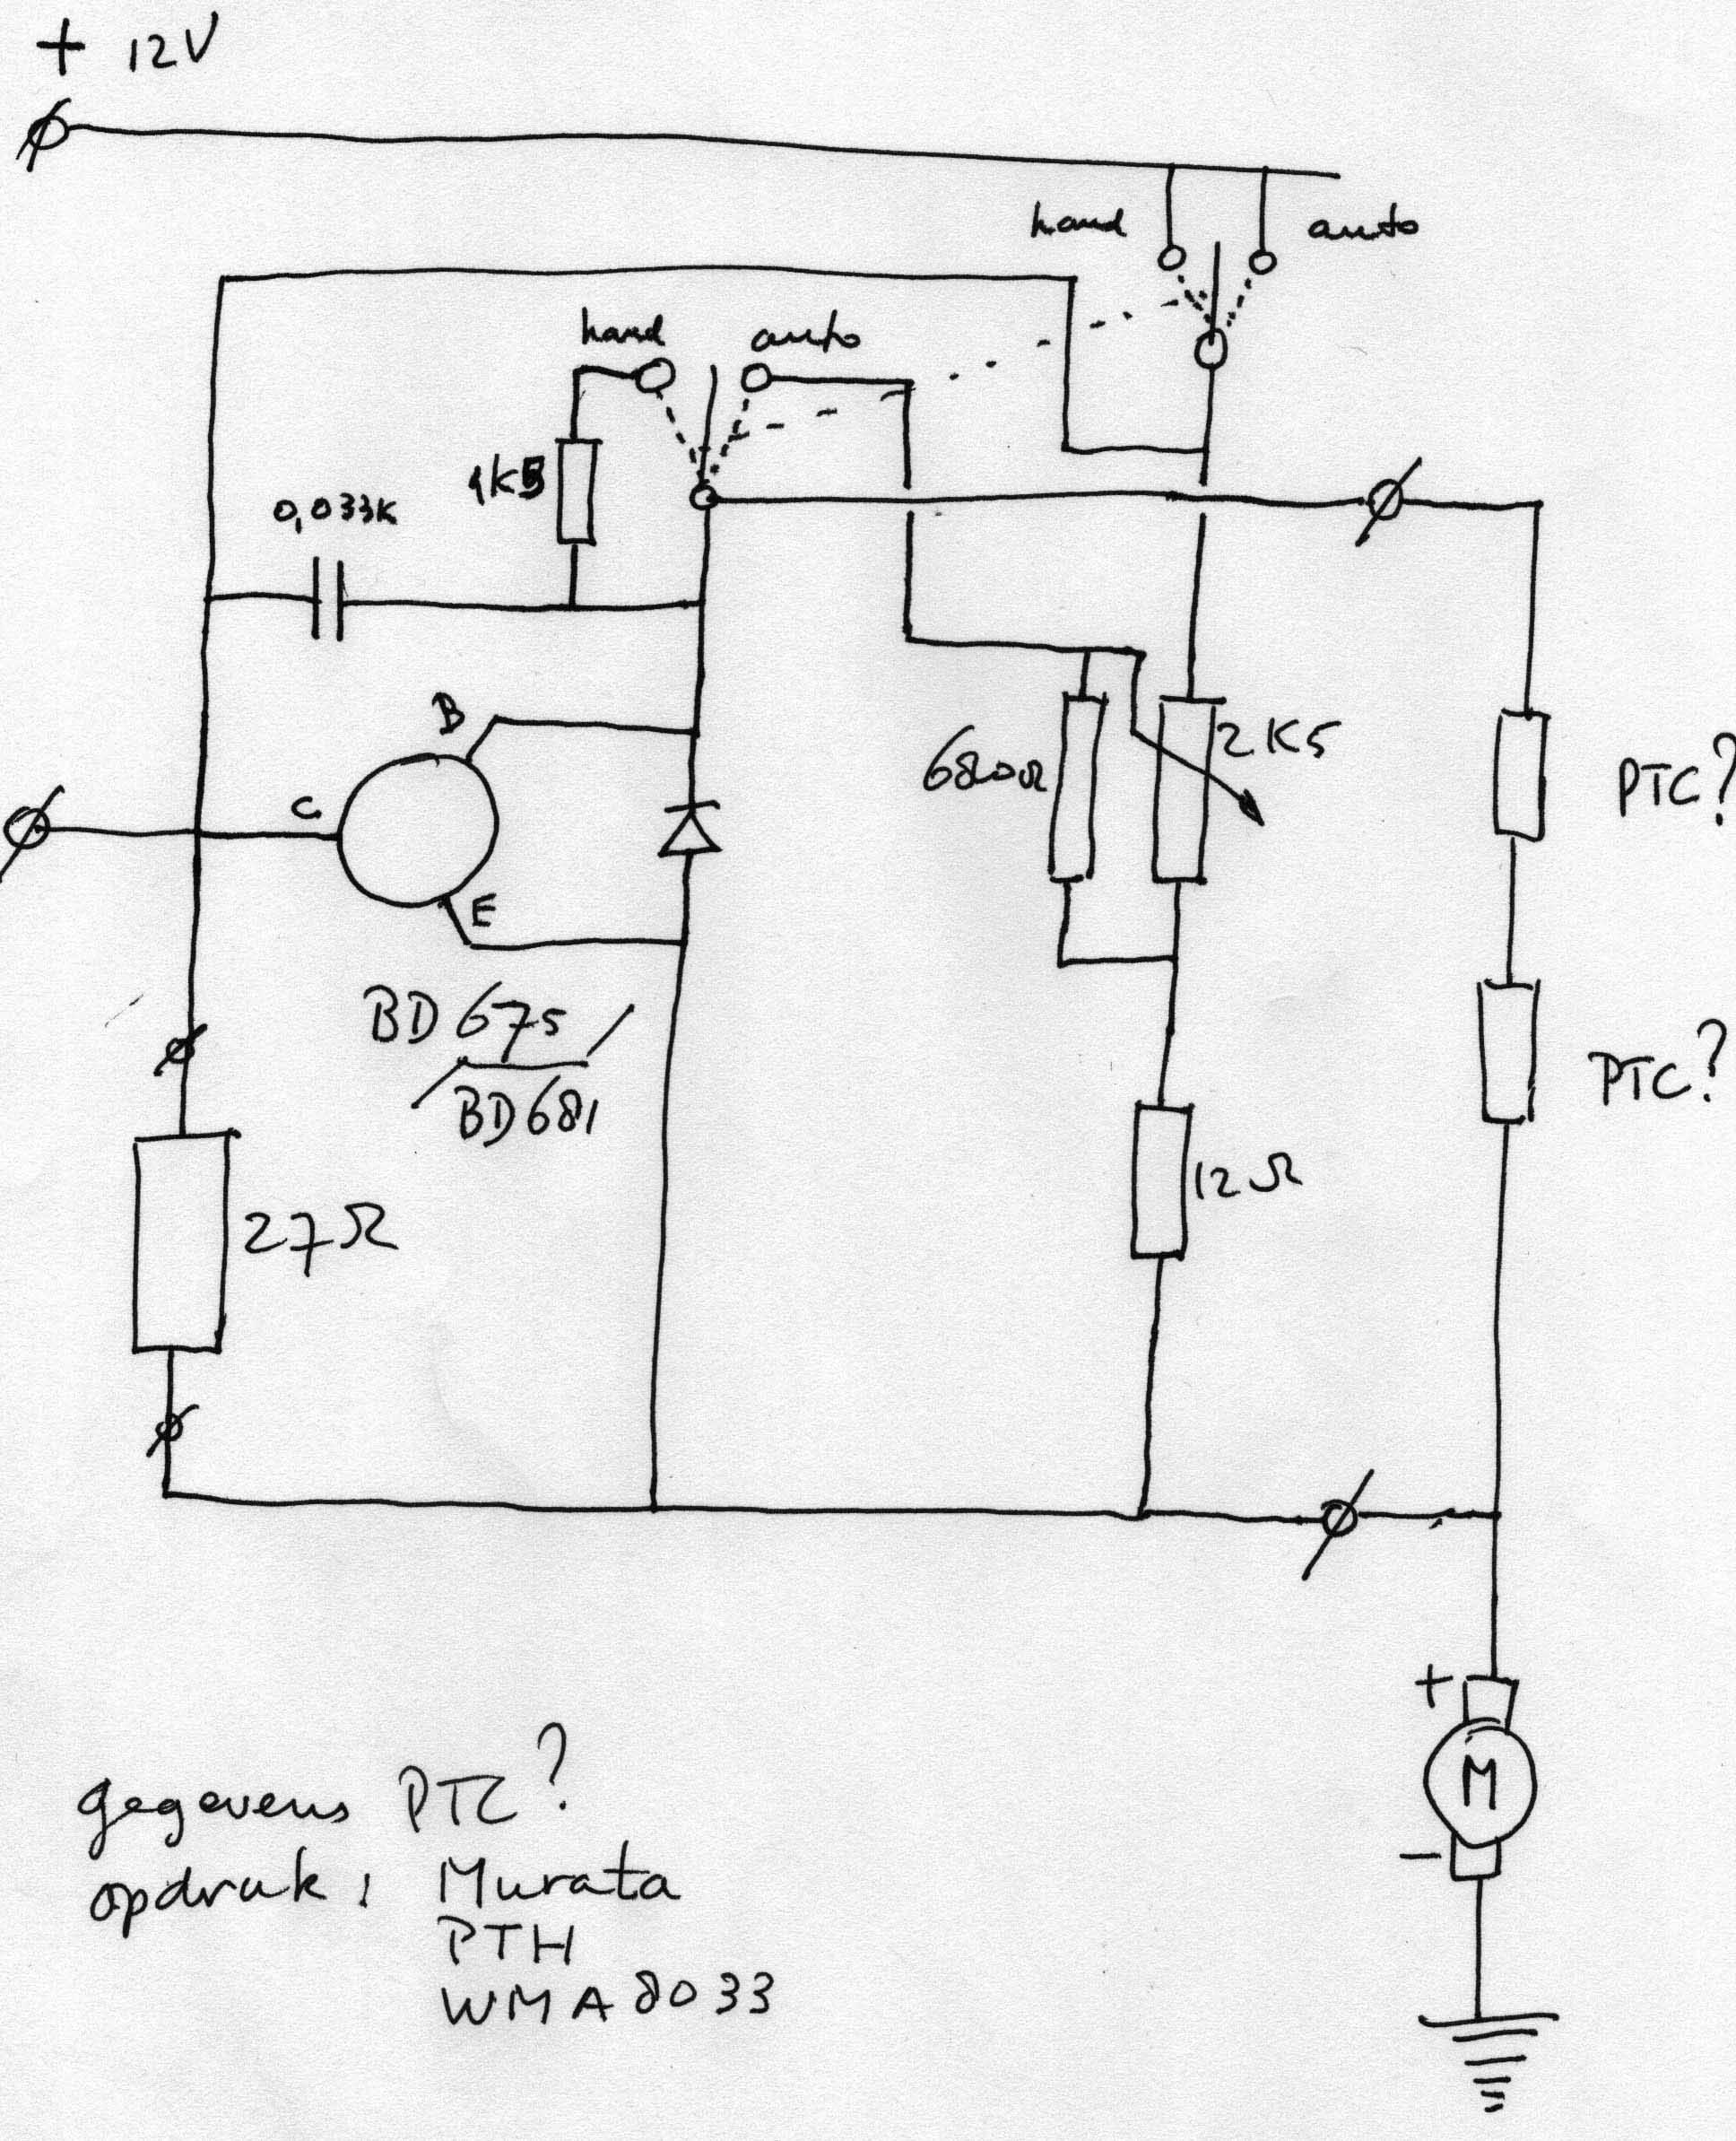 + 12V
hand auto
hand auto
1K5
0,033K
B
C
E
BD675/
/BD681
680Ω
2K5
PTC?
PTC?
27Ω
12Ω
+
M
-
gegevens PTC?
opdruk: Murata
PTH
WMA8033